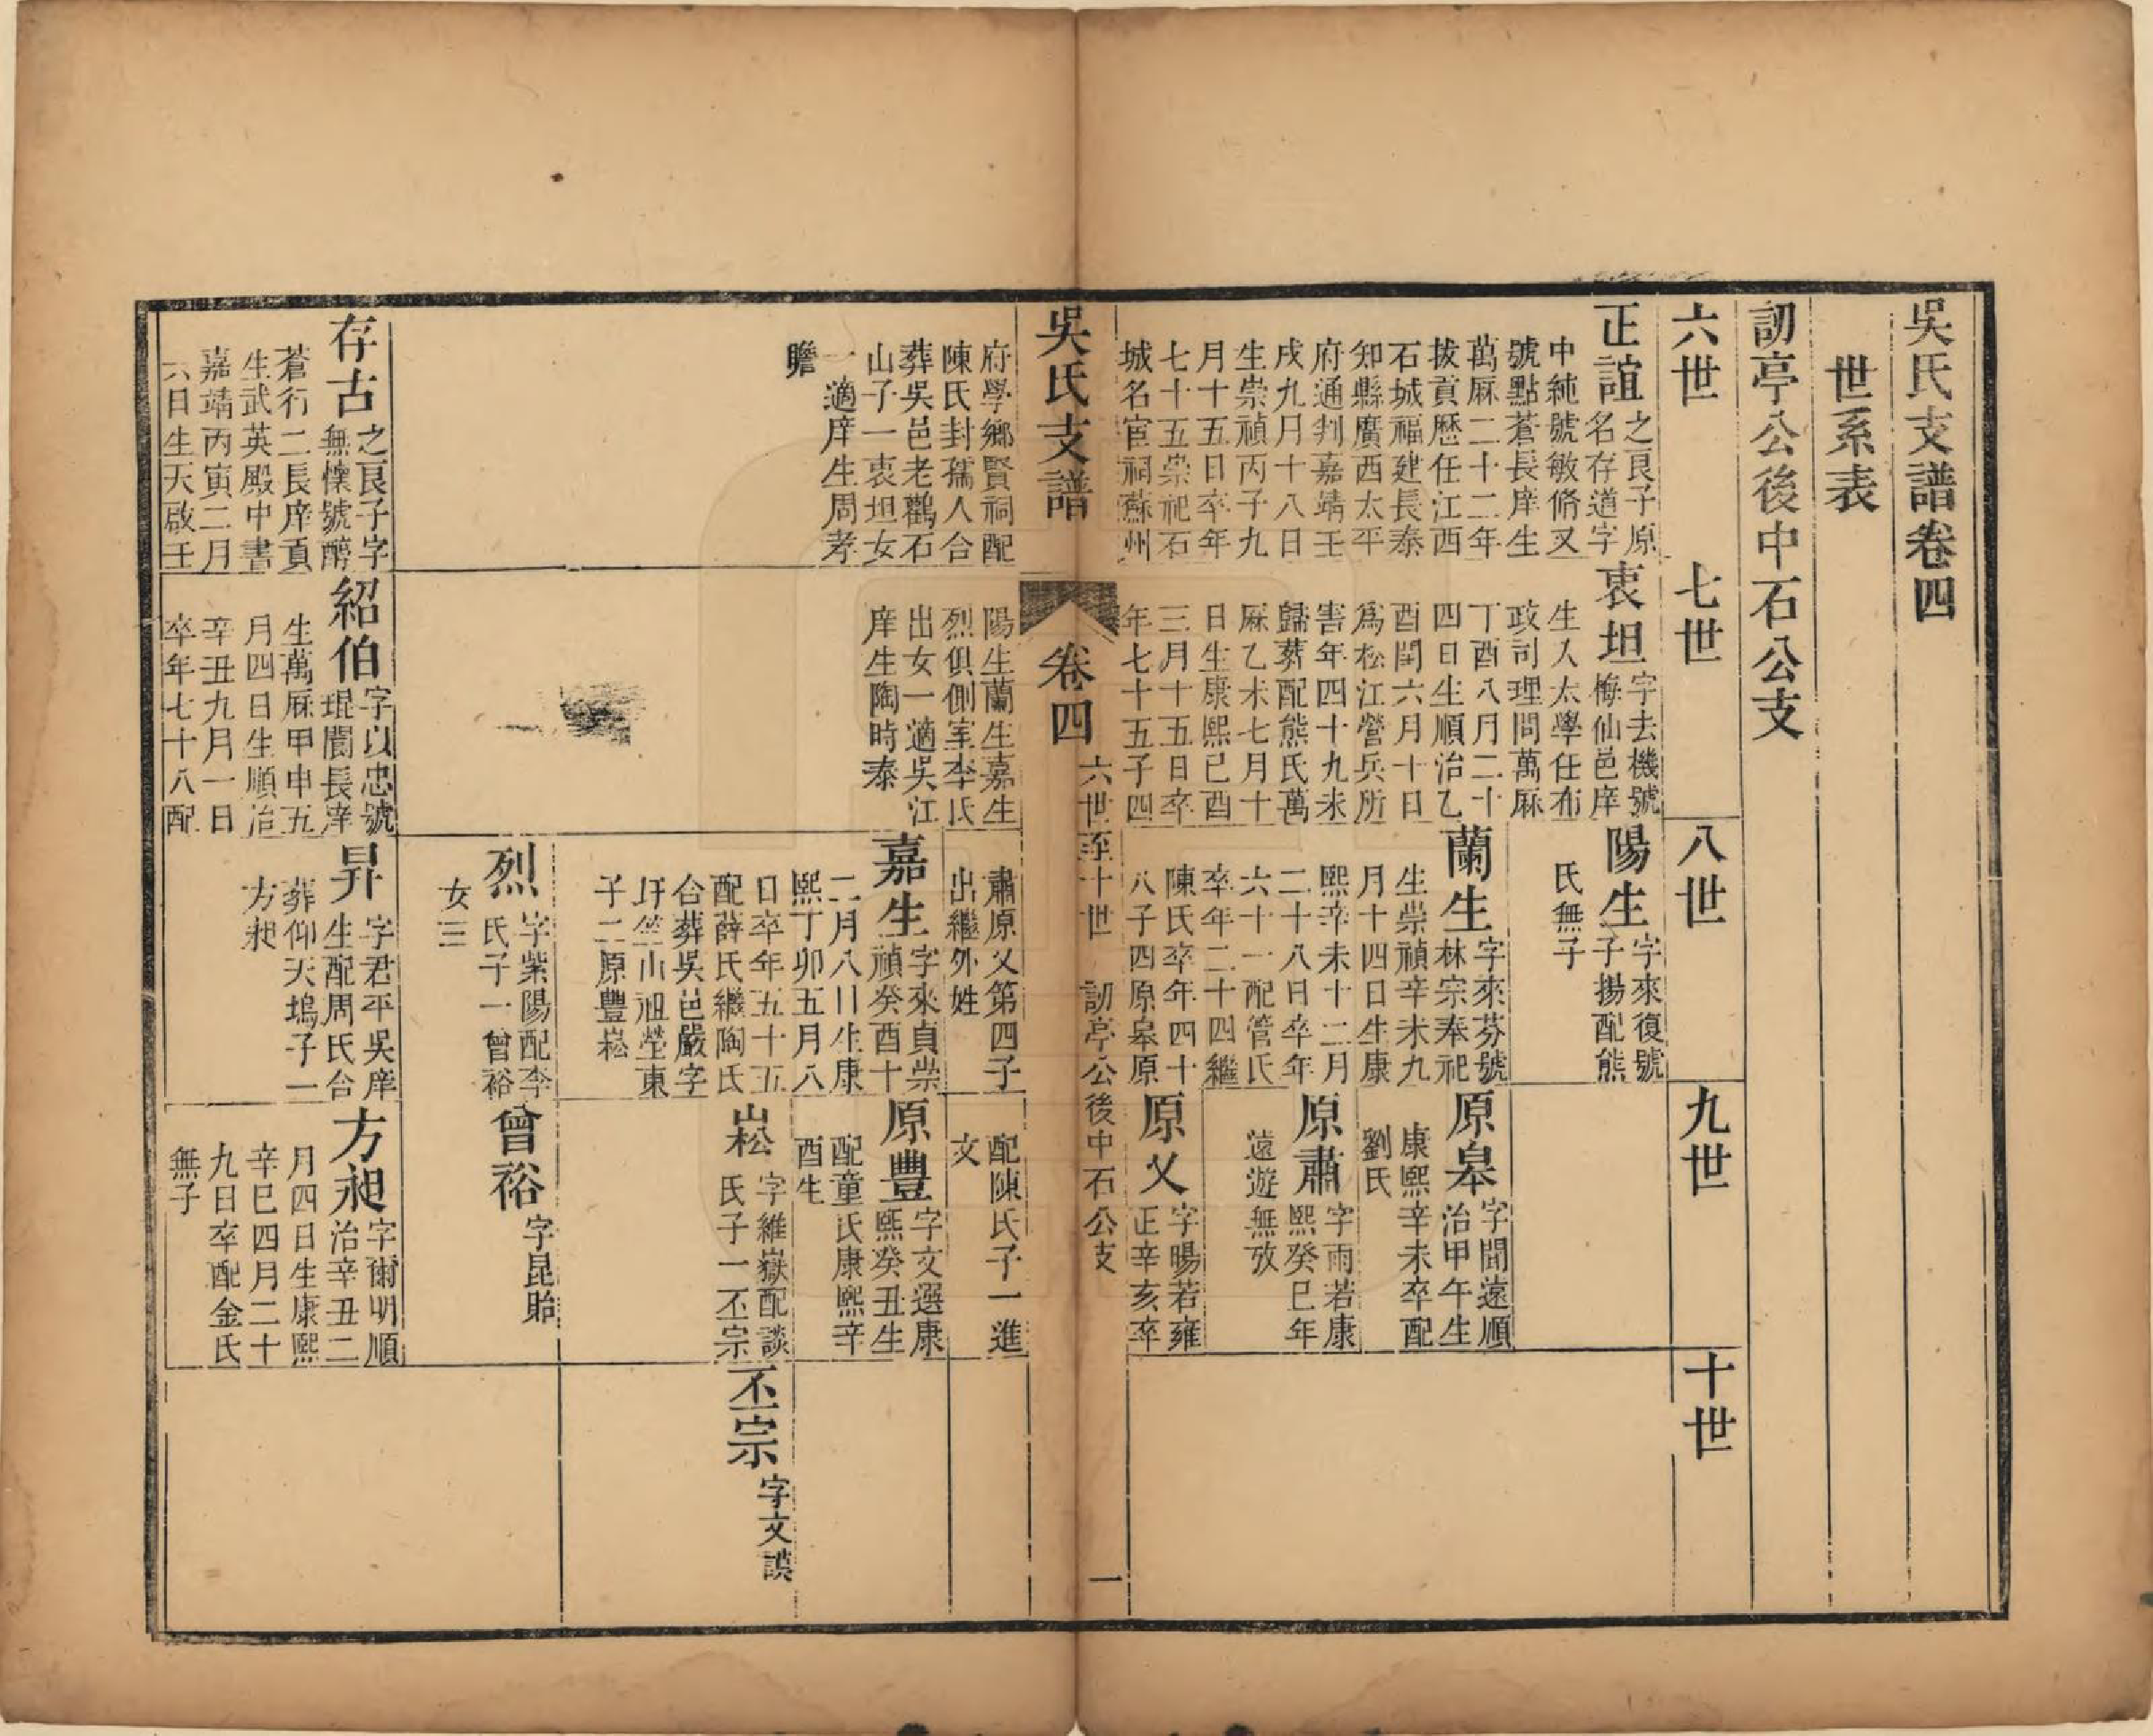 吳氏支譜卷四
世系表
訒亭公後中石公支
六世
七世
八世
九世
十世
正誼
之良子原
名存道字
中純號敏脩又
號點蒼長庠生
萬厤二十二年
拔貢歷任江西
石城福建長泰
知縣廣西太平
府通判嘉靖壬
戌九月十八日
生崇禎丙子九
月十五日卒年
七十五崇祀石
城名宦祠蘇州
衷坦
字去機號
梅仙邑庠
生入太學任布
政司理問萬厤
丁酉八月二十
四日生順治乙
酉閏六月十日
爲松江營兵所
害年四十九未
歸葬配熊氏萬
厤乙未七月十
日生康熙己酉
三月十五日卒
年七十五子四
陽生
字來復號
子揚配熊
氏無子
蘭生
字來芬號
林宗奉祀
生崇禎辛未九
月十四日生康
熙辛未十二月
二十八日卒年
六十一配管氏
卒年二十四繼
陳氏卒年四十
八子四原皋原
原皋
字聞遠順
治甲午生
康熙辛未卒配
劉氏
原肅
字雨若康
熙癸巳年
遠遊無攷
原乂
字暘若雍
正辛亥卒
吳氏支譜
卷四
六世至十世
訒亭公後中石公支
一
府學鄉賢祠配
陳氏封孺人合
葬吳邑老鸛石
山子一衷坦女
一適庠生周孝
瞻
陽生蘭生嘉生
烈俱側室李氏
出女一適吳江
庠生陶時泰
肅原乂第四子
出繼外姓
配陳氏子一進
文
嘉生
字來貞崇
禎癸酉十
二月八日生康
熙丁卯五月八
日卒年五十五
配薛氏繼陶氏
合葬吳邑嚴字
圩竺山祖塋東
子二原豐崧
原豐
字文選康
熙癸丑生
配童氏康熙辛
酉生
崧
字維嶽配談
氏子一丕宗
丕宗
字文謨
烈
字紫陽配李
氏子一曾裕
女三
曾裕
字昆貽
存古
之良子字
無懷號醇
蒼行二長庠貢
生武英殿中書
嘉靖丙寅二月
六日生天啟壬
紹伯
字以忠號
琨閬長庠
生萬厤甲申五
月四日生順治
辛丑九月一日
卒年七十八配
昇
字君平吳庠
生配周氏合
葬仰天塢子一
方昶
方昶
字爾明順
治辛丑二
月四日生康熙
辛巳四月二十
九日卒配金氏
無子